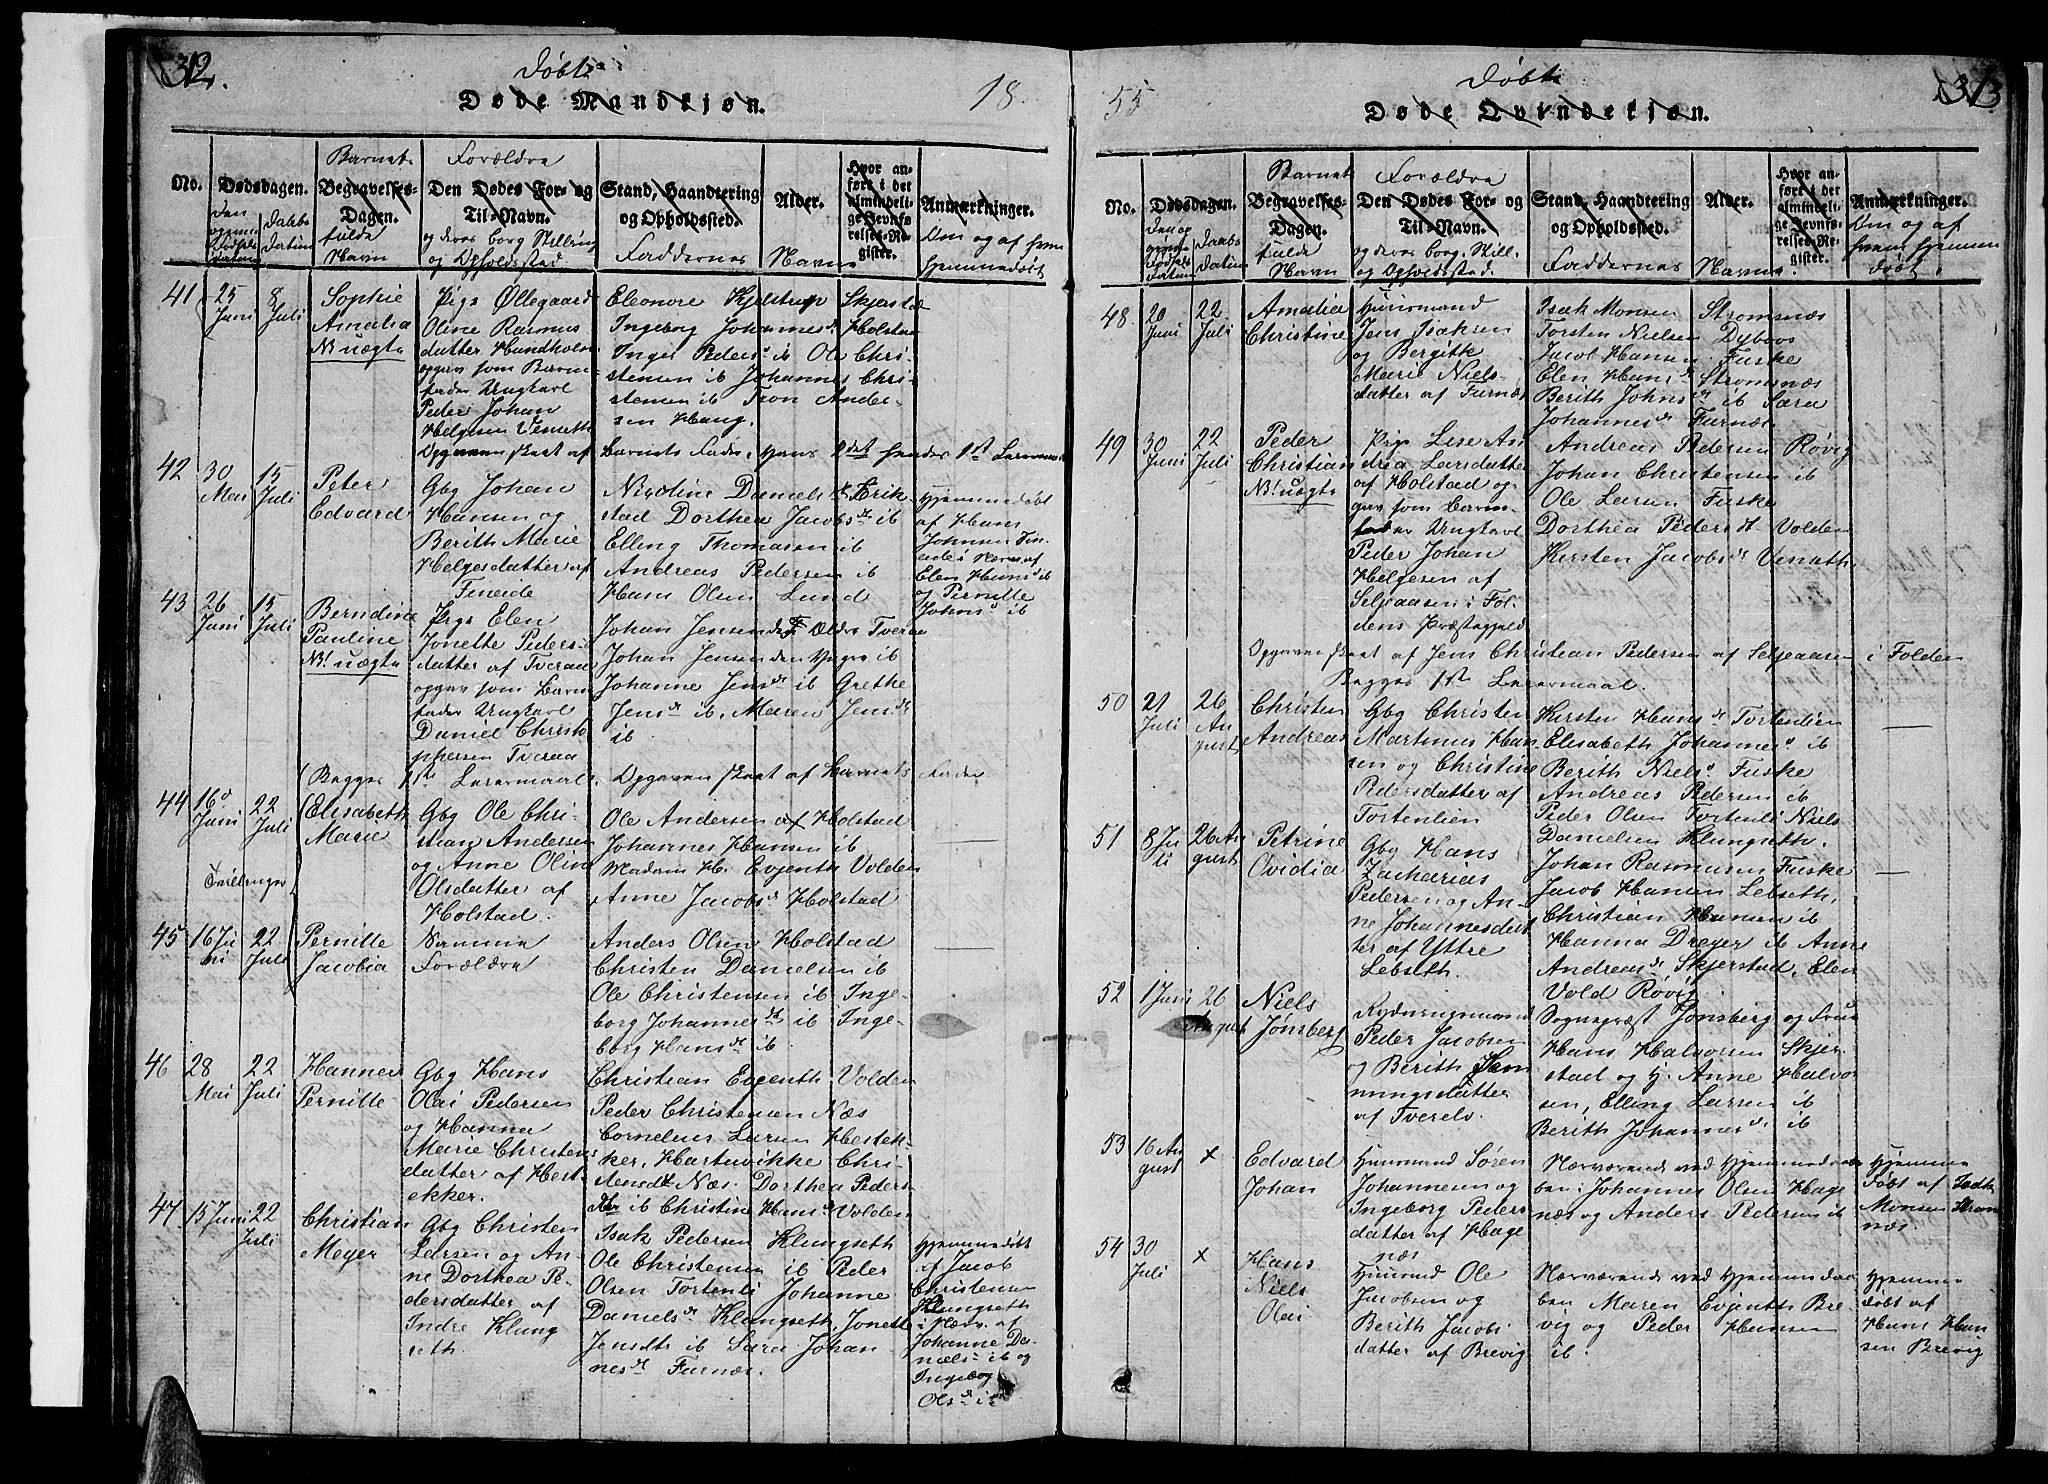 312.
Døbte
Døde Mandkjøn.
18
No.
Dødsdagen.
Barnets
Begravelses-
Dagen.
fulde
Navn
Forældre
Den Dødes For- og
Til-Navn.
og deres borg Stilling
og Opholdssted
Stand, Haandtering
og Opholdssted.
Faddernes
Alder.
Navne
Hvor an-
ført i det
almindeli-
ge Jevnfø-
relses-Re-
gister.
Anmærkninger.
Om og af hvem
hjemmedøbt
41
25
Juni
8
Juli
Sophie
Amalia
NB! uægte
Pige Øllegaard
Oline Rasmus
datter Hundholm
opgav som Barne-
fader Ungkarl
Peder Johan
Helgesen Venseth
Eleonore Kjelstrup Skjerstad
Ingeborg Johannesdr Holstad
Inger Pedersd ib Ole Chri-
stensen ib Johannes Chri-
stensen ib Tron Ander-
sen Haug.
Opgaven skeet af Barnets Fader, Hans 2det hendes 1ste Leiermaal
42
30
Mai
15
Juli
Peter
Edvard
Gbg Johan
Hansen og
Berith Marie
Helgesdatter af
Fineide
Nicoline Danielsdr Erik-
stad Dorthea Jacobsdr ib
Elling Thomasen ib
Andreas Pedersen ib
Hans Olsen Lund
Hjemmedøbt
af Hans
Johnsen Fin-
eide i Nærv. af
Elen Hansd ib
og Pernille
Johnsd ib
43
26
Juni
15
Juli
Berndine
Pauline
NB! uægte
Pige Elen
Jonette Peders-
datter af Tveraa
opgav som Barne
fader Ungkarl
Daniel Christo
phersen Tveraa
Johan Jensen den Ældre Tveraa
Johan Jensen den Yngre ib
Johanne Jensdr ib Grethe
Jensdr ib, Maren Jensdr
ib
(Begges 1ste Leiermaal. Opgaven skeet af Barnets Fader
44
16d
Juni
22
Juli
Tvillinger
Elisabeth
Marie
Gbg Ole Chri-
stian Andersen
og Anne Olina
Olsdatter af
Holstad.
Ole Andersen af Holstad
Johannes Hansen ib
Madam H. Evjenth Volden
Anne Jacobsdr Holstad
45
16 Ju
ni
22
Juli
Pernille
Jacobia
Samme
Forældre
Anders Olsen Holstad
Christen Danielsen ib
Ole Christensen ib Inge-
borg Johannesdr ib Inge-
borg Hansdr ib
46
28
Mai
22
Juli
Hanner
Pernille
Gbg Hans
Olai Pedersen
og Hanna
Marie Christens
datter af Hest-
ekker.
Christian Evjenth Volden
Peder Christensen Næs
Cornelius Larsen Hestek-
ker, Hartvikke Chri-
stensdr Næs. Dorthea Peders-
dtr ib Christine Hansd Volden
47
15 Juni
22
Juli
Christian
Meyer
Gbg Christen
Larsen og An-
ne Dorthea Pe-
dersdatter af
Indre Klung
seth.
Isak Pedersen Klungseth
Ole Christensen ib Peder
Olsen Tortenli Johanne
Danielsdr Klungseth, Jonette
Jensdtr ib Sara Johan-
nesdr Furnæs.
Hjemmedøbt
af Jacob
Christensen
Klungseth
i Nærv. af
Johanne Da-
niels- ib og
Ingeborg
Olsd ib
55
Døbte
313
Døde Qvindekjøn.
No.
Dødsdagen.
Barnets
Begravelses-
Dagen.
fulde
Navn
Forældre
Den Dødes For- og
Til-Navn.
og deres borg. Still.
og Opholdssted.
Stand, Haandtering
og Opholdssted.
Faddernes
Alder.
Navne.
Hvor an-
ført i det
almindeli-
ge Jevnfø-
relses-Re-
gister.
Anmærkninger.
Om og af
hvem hjemme
døbt.
48
20
Juni
22
Juli
Amalia
Christine
Huusmand
Jens Isaksen
og Bergitte
Marie Niels-
datter af Furnæs
Isak Monsen Strømsnæs
Torsten Nielsen Dybvos
Jacob Hansen Fuske
Elen Hansdr Strømsnæs
Berith Johnsdr ib Sara
Johannesdr Furnæs.
49
30
Juni
22
Juli
Peder
Christian
NB! uægte
Pige Lise An-
drea Larsdatter
af Holstad op-
gav som Barne-
fader Ungkarl
Peder Johan
Helgesen af
Seljeaasen i Fol-
dens Præstegjeld
Andreas Pedersen Røvig
Johan Christensen ib
Ole Larsen Fuske
Dorthea Pedersdt Volden
Kersten Jacobsdr Venseth
Opgaven skeet af Jens Christian Pedersen af Seljeaasen i Folden
Begges 1ste Leiermaal.
50
21
Juli
26
Au
gust
Christen
Andreas
Gbg Christen
Martinus Han
sen og Christine
Pedersdatter af
Tortenlien
Kersten Hansdr Tortenlien
Elisabeth Johannesd ib
Berith Nielsd Fuske
Andreas Pedersen ib
Peder Olsen Tortenli Niels
Danielsen Klungseth.
51
8 Ju
li
26 Au
gust
Petrine
Ovidia
Gbg Hans
Zacharias
Pedersen og An-
ne Johannesdat
ter af Yttre
Lebseth.
Johan Rasmusen Fuske
Jacob Hansen Lebseth,
Christian Hansen ib
Hanna Dreyer ib Anne
Andreasdr Skjerstad, Elen
Vold Røvig
52
1 Juni
26
August
Niels
Jønsberg
Rydningsmand
Peder Jacobsen
og Berith Hem
mingsdatter
af Tverelv.
Sognepræst Jønsberg og Frue
Hans Halvorsen Skjer-
stad og H. Anne Halvor
sen, Elling Larsen ib
Berith Johannesd ib
53
16 Au
gust
x
Edvard
Johan
Huusmand Søren
Johannesen og
Ingeborg Peders
datter af Hage
næs
Nærværende ved Hjemmedaa-
ben: Johannes Olsen Hage
næs og Anders Pedersen ib
Hjemme
døbt af
Monsen Strøm
næs.
54
30
Juli
x
Hans
Niels
Olai
Huusmd Ole
Jacobsen og
Berith Jacobs
datter af Brevig
Nærværende ved Hjemmedaa
ben Maren Evjenth Bre
vig og Peder Hansen
ib.
Hjemme
døbt af
Hans Han
sen Brevig